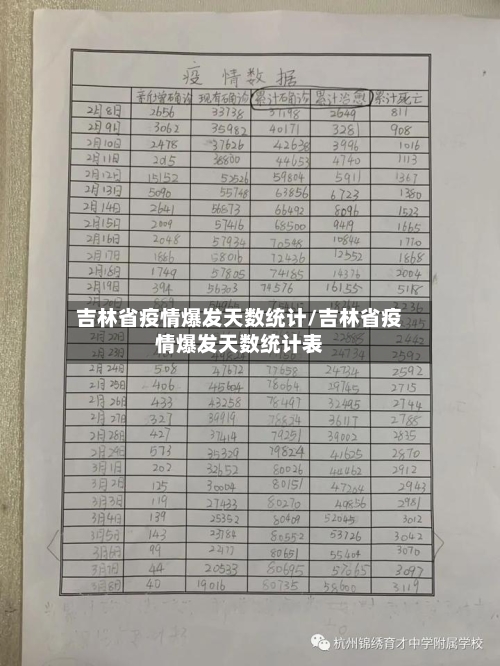 疫情数据
新增确诊 现有确诊 累计确诊 累计治愈 累计死亡
2月8日 2656 33738 37198 2649 811
2月9日 3062 35982 40171 3281 908
2月10日 2478 37626 42638 3996 1016
2月11日 2015 38800 44653 4740 1113
2月12日 15152 52526 59804 5911 1367
2月13日 5090 55748 63856 6723 1380
2月14日 2641 56873 66492 8096 1523
2月15日 2009 57416 68500 9419 1665
2月16日 2048 57934 70548 10844 1770
2月17日 1886 58016 72436 12552 1868
2月18日 1749 57805 74185 14376 2004
2月19日 394 56303 74576 16155 5118
吉林省疫情爆发天数统计/吉林省疫
情爆发天数统计表
2月24日 508 47672 77658 24734 2592
2月25日 406 45604 78064 29745 2715
2月26日 433 43258 78497 32495 2744
2月27日 327 39919 78824 36117 2788
2月28日 427 37414 79251 39002 2835
2月29日 573 35329 79824 41625 2870
3月1日 202 32652 80026 44462 2912
3月2日 125 30004 80151 47204 2943
3月3日 119 27433 80270 2981
3月4日 139 25352 80409 52045 3012
3月5日 143 23784 80552 53726 3042
3月6日 99 80651 55404 3070
3月7日 44 20533 80695 57065 3097
3月8日 40 19016 80735 58600 3119
杭州锦绣育才中学附属学校